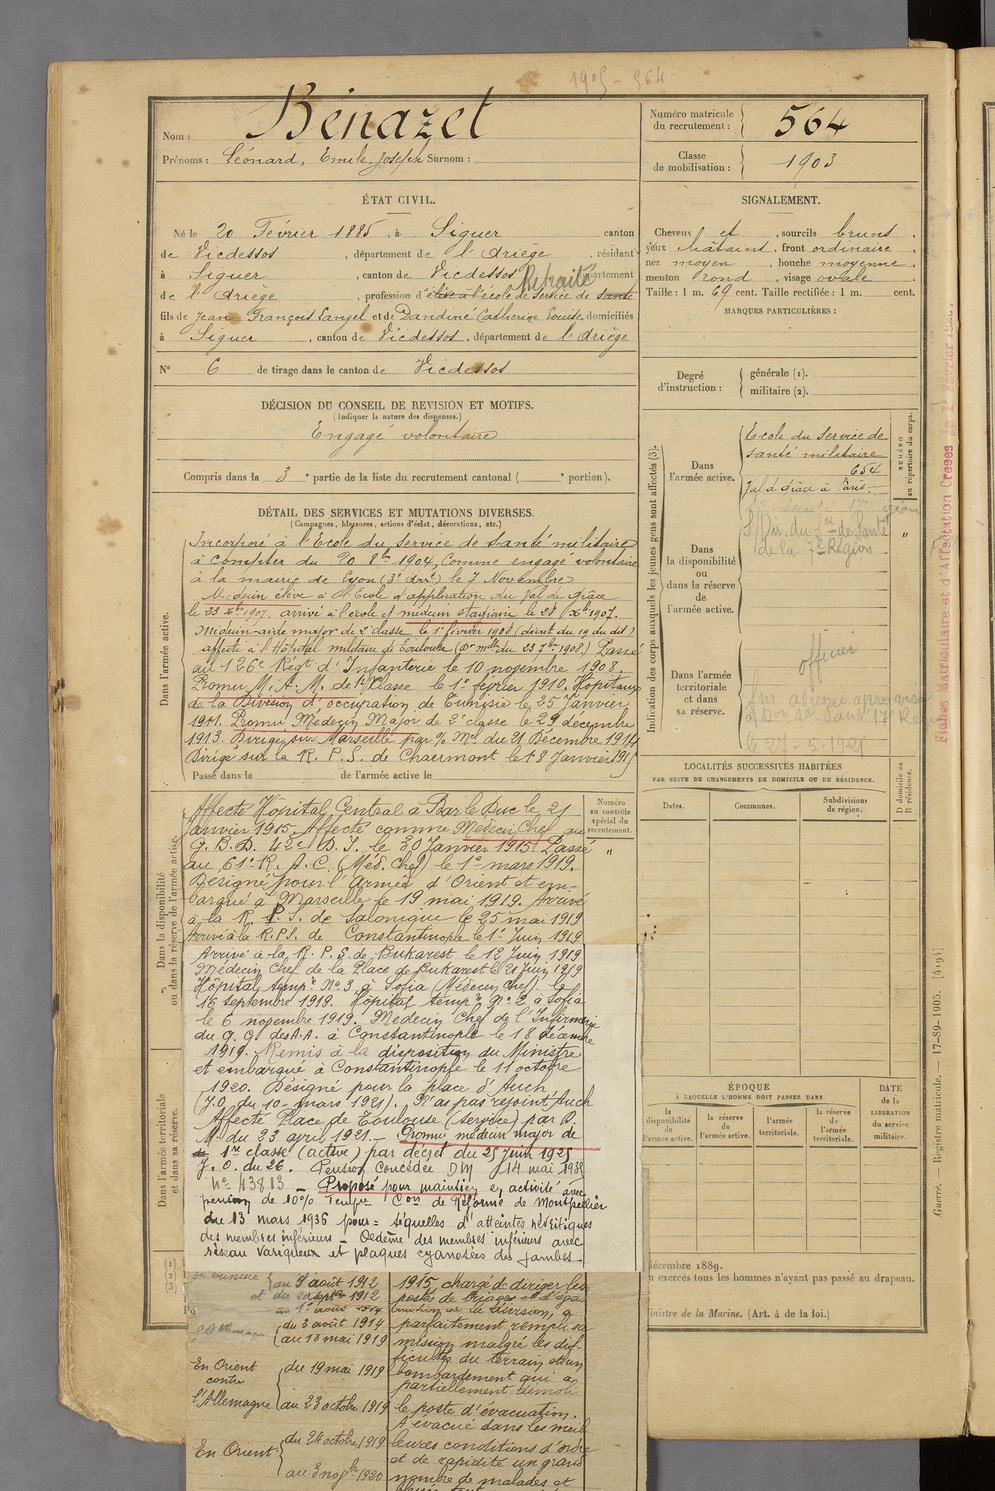 1905 - 564
Nom : Bénazet
Prénoms : Léonard, Emile, Joseph Surnom :
Numéro matricule du recrutement : 564
Classe de mobilisation : 1903
ÉTAT CIVIL.
Né le 20 Février 1885, à Siguer canton
de Vicdessos, département de l'Ariège, résidant
à Siguer, canton de Vicdessos, département
Retraité
de l'Ariège, profession d'élève à l'école de Service de Santé
fils de Jean François Langel et de Dandine Catherine Louise, domiciliés
à Siguer, canton de Vicdessos, département de l'Ariège
N° 6 de tirage dans le canton de Vicdessos
SIGNALEMENT.
Cheveux et, sourcils bruns,
yeux châtains, front ordinaire,
nez moyen, bouche moyenne,
menton rond, visage ovale.
Taille : 1 m. 69 cent. Taille rectifiée : 1 m. cent.
MARQUES PARTICULIÈRES :
Degré d'instruction : générale (1).
militaire (2).
DÉCISION DU CONSEIL DE REVISION ET MOTIFS.
(Indiquer la nature des dispenses.)
Engagé volontaire
Compris dans la 3e partie de la liste du recrutement cantonal ( e portion).
DÉTAIL DES SERVICES ET MUTATIONS DIVERSES.
(Campagnes, blessures, actions d'éclat, décorations, etc.)
Dans l'armée active.
Incorporé à l'Ecole du Service de Santé militaire
à compter du 20 8bre 1904, Comme engagé volontaire
à la mairie de Lyon (3e Arrt) le 7 Novembre
Médecin élève à l'Ecole d'application du Val de Grâce
le 23 Xbre 1907. arrivé à l'école et médecin stagiaire le 28 Xbre 1907.
Médecin-aide major de 2e classe le 1er février 1908 (décret du 19 du dit)
affecté à l'Hôpital militaire de Toulouse (Don mlle du 23 7bre 1908) Passé
au 126e Régt d'Infanterie le 10 novembre 1908.
Promu M. A. M. de 1re Classe le 1er février 1910. Hôpitaux
de la Division d'occupation de Tunisie le 25 Janvier
1911. Promu Médecin Major de 2e classe le 29 décembre
1913. Dirigé sur Marseille par % Mel du 21 Décembre 1914
Dirigé sur la R. P. S. de Chaumont le 18 Janvier 1915
Passé dans la de l'armée active le
Indication des corps auxquels les jeunes gens sont affectés (3).
Dans l'armée active.
Ecole du Service de
Santé militaire
654
Val de grâce à Paris.
NUMÉRO au répertoire du corps.
Dans la disponibilité ou dans la réserve de l'armée active.
de la 7e Région
"
Dans l'armée territoriale et dans sa réserve.
officier
le 27-5-1921
Fiches Matricularies et d'Affectation
LOCALITÉS SUCCESSIVES HABITÉES
PAR SUITE DE CHANGEMENTS DE DOMICILE OU DE RÉSIDENCE.
Dates.
Communes.
Subdivisions de région.
D domicile ou R résidence.
Dans la disponibilité ou dans la réserve de l'armée active.
Numéro au contrôle spécial du recrutement.
"
Affecté Hôpital Central à Bar le Duc le 21
Janvier 1915. Affecté comme Médecin Chef au
G. B. D. 42e D. I. le 30 Janvier 1915. Passé
au 61e R. A. C. (Méd. Chef) le 1er mars 1919.
Désigné pour l'Armée d'Orient et em-
barqué à Marseille le 19 mai 1919. Arrivé
à la R. P. S. de Salonique le 25 mai 1919
Arrivé à la R.P.S. de Constantinople le 1er Juin 1919
Arrivé à la R. P. S. de Bukarest le 12 Juin 1919
Médecin Chef de la Place de Bukarest le 21 Juin 1919
Hôpital tempre N° 3 à Sofia (Médecin Chef) le
16 septembre 1919. Hôpital tempre N° 2 à Sofia
le 6 novembre 1919. Médecin Chef de l'Infirmerie
du G. Q. des A.A. à Constantinople le 18 décembre
1919. Remis à la disposition du Ministre
et embarqué à Constantinople le 11 octobre
1920. Désigné pour la place d'Auch
(J.O. du 10 mars 1921). N'a pas rejoint Auch
Affecté Place de Toulouse (service) par D.
M. du 23 avril 1921. - Promu médecin major de
1re classe (active) par décret du 25 juin 1925
J. O. du 26. Pension Concédée DM 14 mai 1935
N° 43813 - Proposé pour maintien en activité avec
pension de 10% Tempre Con de Réforme de Montpellier
du 13 mars 1936 pour = Séquelles d'atteintes névritiques
des membres inférieurs - Oedème des membres inférieurs avec
réseau variqueux et plaques cyanosées des jambes -
Dans l'armée territoriale et dans sa réserve.
ÉPOQUE
À LAQUELLE L'HOMME DOIT PASSER DANS
la disponibilité de l'armée active.
la réserve de l'armée active.
l'armée territoriale.
la réserve de l'armée territoriale.
DATE de la LIBÉRATION du service militaire.
(1)
(2)
(3)
décembre 1889.
n exercés tous les hommes n'ayant pas passé au drapeau.
inistre de la Marine. (Art. 4 de la loi.)
Guerre. — Registre matricule. — 17-89-1905. [4194]
au 5 août 1912
et du 1912
du 2 août 1914
au 18 mai 1919
En Orient contre l'Allemagne
du 19 mai 1919
au 23 octobre 1919
En Orient
du 24 octobre 1919
au 3 novbre 1920
1915, chargé de diriger les
poste de triage et d'éva
cuation de la division, a
parfaitement rempli sa
mission malgré les dif-
ficultés du terrain et un
bombardement qui a
partiellement démoli
le poste d'évacuation.
A évacué dans les meil
leures conditions d'ordre
et de rapidité un grand
nombre de malades et